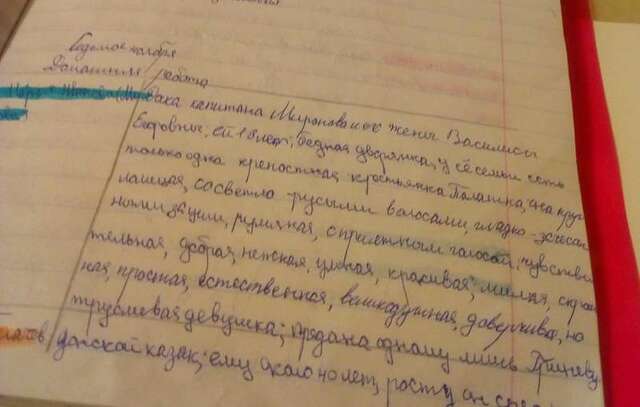 Седьмое ноября
Домашняя работа
дака капитана Миронова и его жены Василисы
Егоровны. Ей 18 лет; бедная дворянка, у её семьи есть
только одна крепостная крестьянка Палашка, она круг-
лолицая, со светло-русыми волосами, гладко-зачесан
ными за уши, румяная, с приятным голосом, чувстви
тельная, добрая, нежная, умная, красивая, милая, скром
ная, простая, естественная, великодушная, доверчива, но
трусливая девушка; предана одному лишь Гринёву.
донской казак; ему около 40 лет, росту он